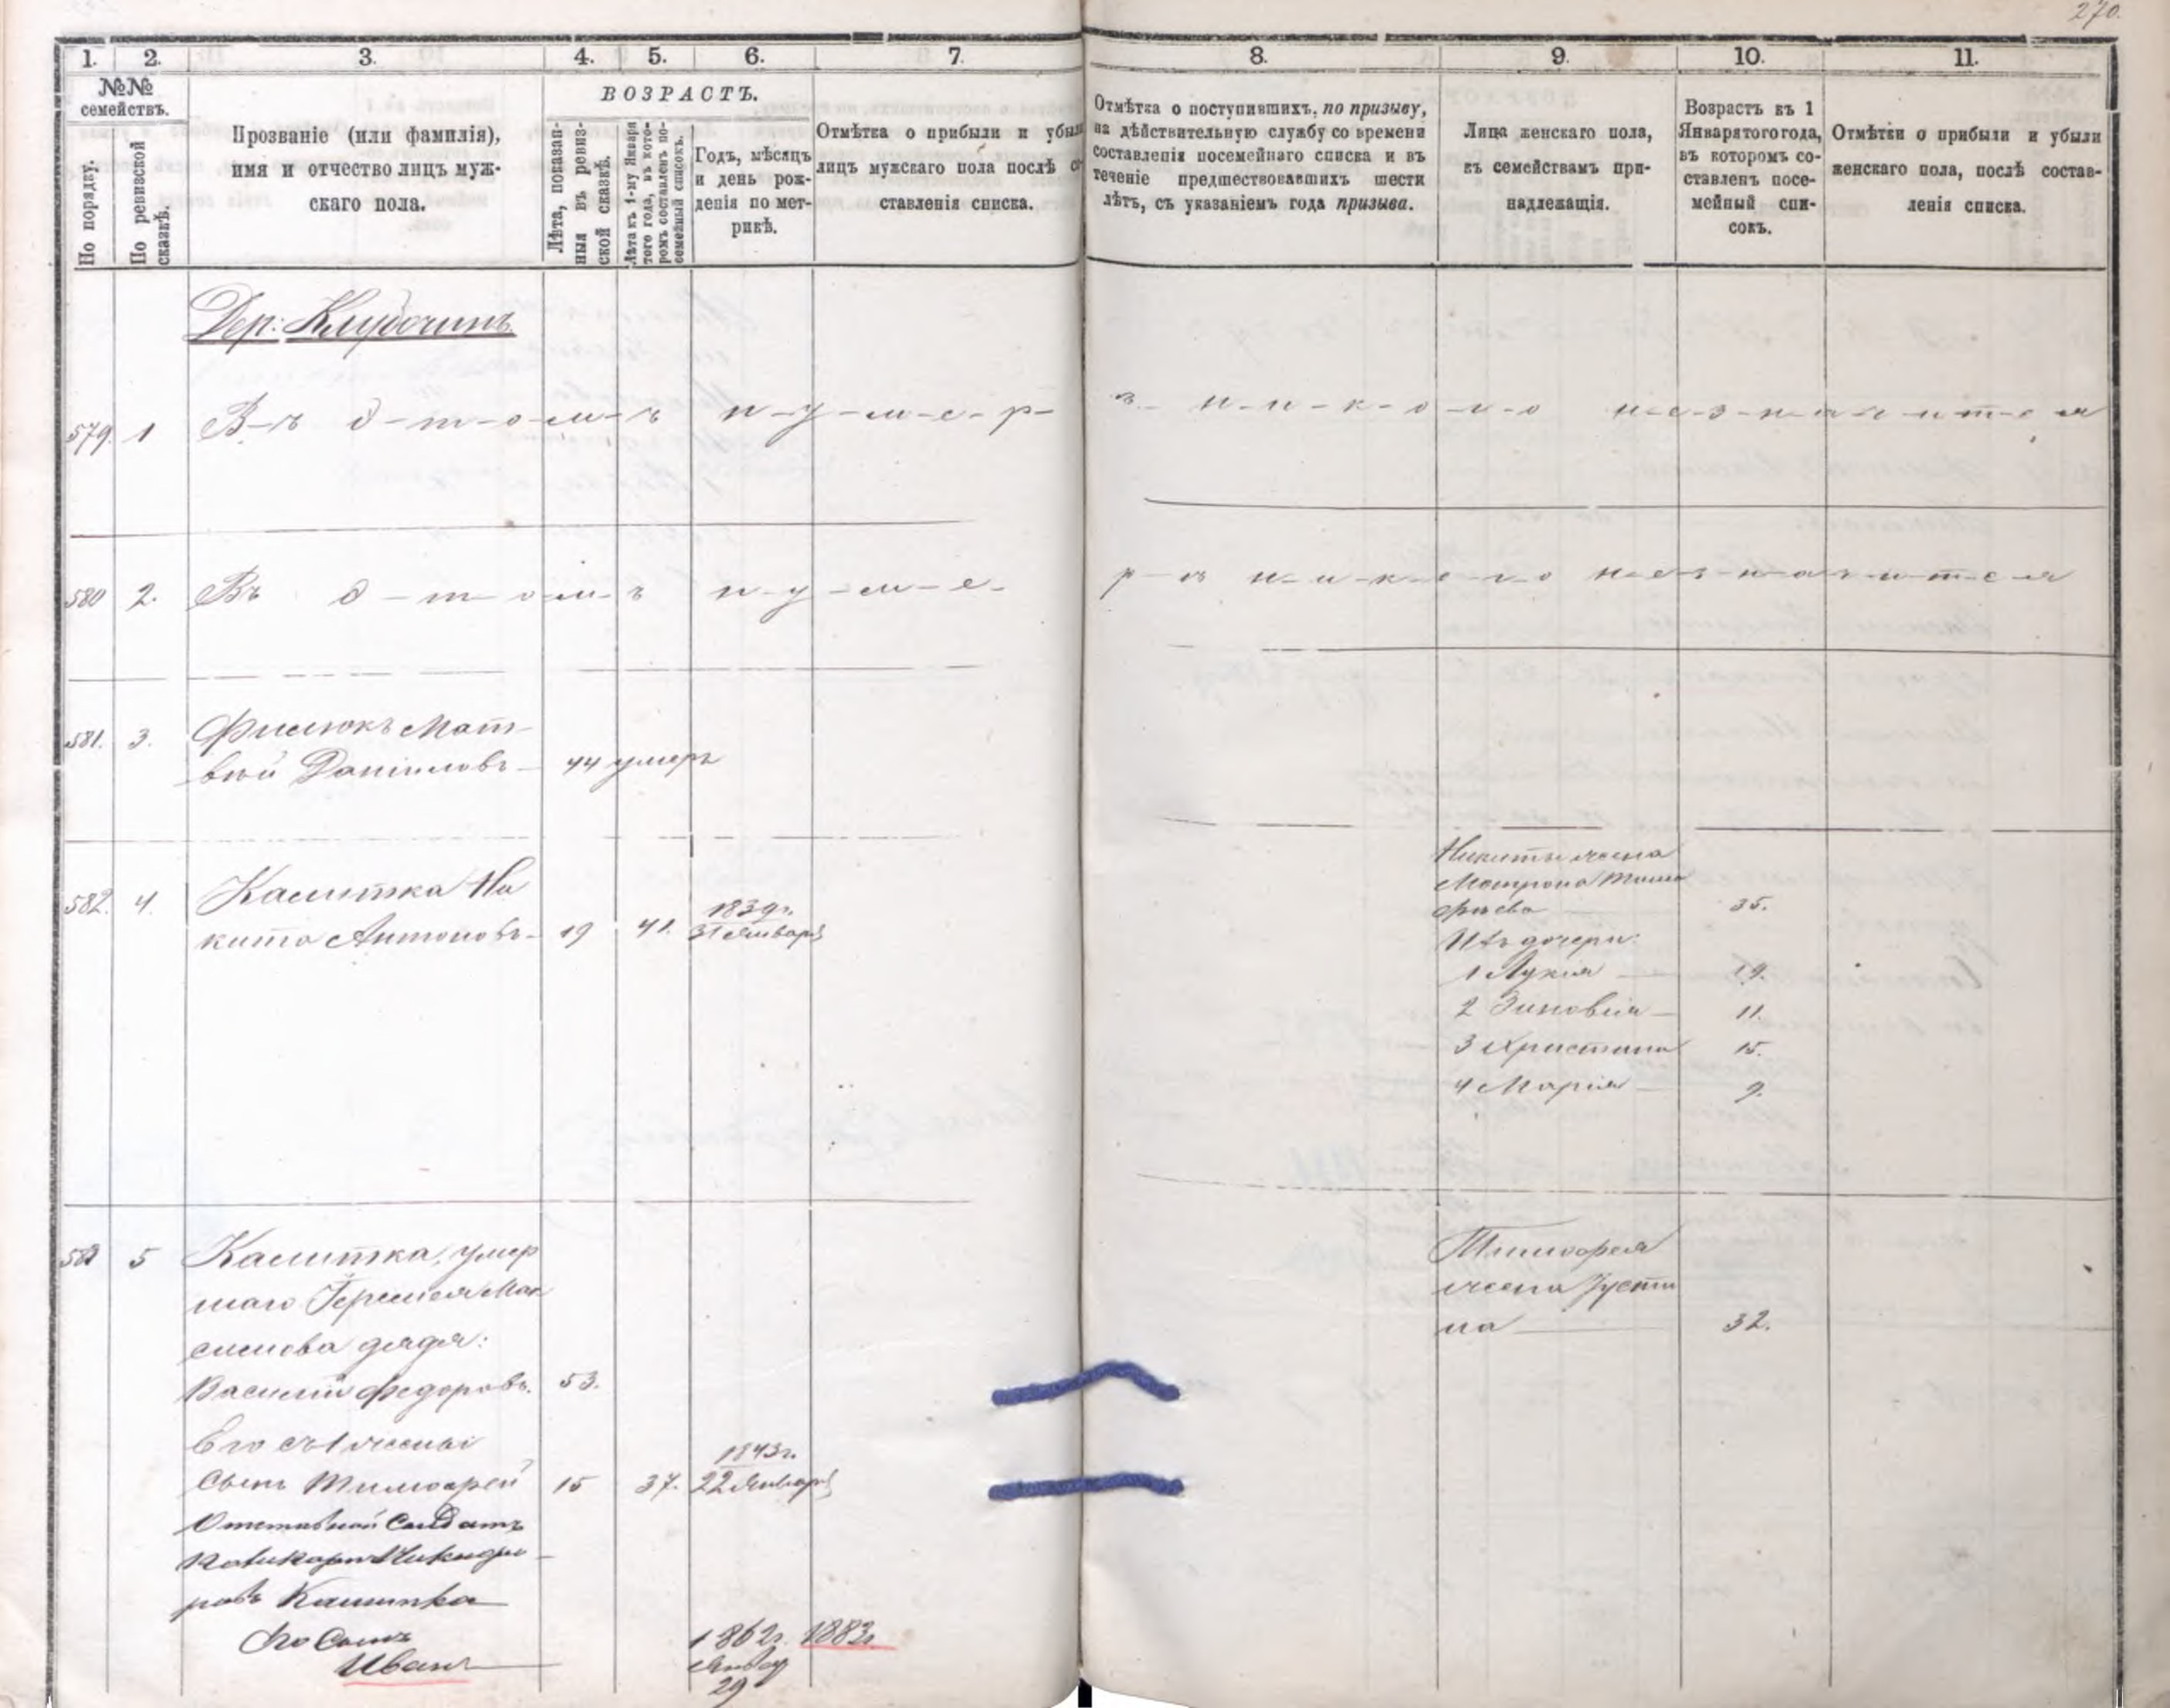 270.
1. 2. 3. 4. 5. 6. 7. 8. 9. 10. 11.
№№
семействъ.
По порядку.
По ревизской
сказкѣ.
Прозваніе (или фамилія),
имя и отчество лицъ муж-
скаго пола.
ВОЗРАСТЪ.
Лѣта, показан-
ныя въ ревиз-
ской сказкѣ.
Лѣта къ 1-му Января
того года, въ кото-
ромъ составленъ по-
семейный списокъ.
Годъ, мѣсяцъ
и день рож-
денія по мет-
рикѣ.
Отмѣтка о прибыли и убыли
лицъ мужскаго пола послѣ со
ставленія списка.
Отмѣтка о поступившихъ, по призыву,
на дѣйствительную службу со времени
составленія посемейнаго списка и въ
теченіе предшествовавшихъ шести
лѣтъ, съ указаніемъ года призыва.
Лица женскаго пола,
къ семействамъ при-
надлежащія.
Возрастъ къ 1
Января того года,
въ которомъ со-
ставленъ посе-
мейный спи-
сокъ.
Отмѣтки о прибыли и убыли
женскаго пола, послѣ состав-
ленія списка.
Дер: Клубочинъ
579. 1 В-ъ э-т-о-м-ъ н-у-м-е-р- ѣ- н-и-к-о-г-о н-е-з-н-а-ч-и-т-с-я
580 2. Въ э-т-о-м-ъ н-у-м-е- р-ѣ н-и-к-о-г-о н-е-з-н-а-ч-и-т-с-я
581. 3. Филюкъ Мат-
вѣй Даніиловъ 44 умеръ
582. 4. Калитка Ни
кита Антоновъ 19 41. 1839г.
31 Января
Никиты жена
Матрона Тимо
фѣева 35.
Ихъ дочери:
1 Лукія 19.
2 Зиновія 11.
3 Христина 15.
4 Марія 9.
583 5 Калитка, умер
шаго Гермела Мак
симова дядя:
Василій Федоровъ. 53.
Его съ 1 жены
сынъ Тимофей 15 37. 1843г.
22 Января
Тимофея
жена Усти
на 32.
Отставной Солдатъ
Никифоровъ Калитка
Его Сынъ
Иванъ 1862г. 1883г.
29